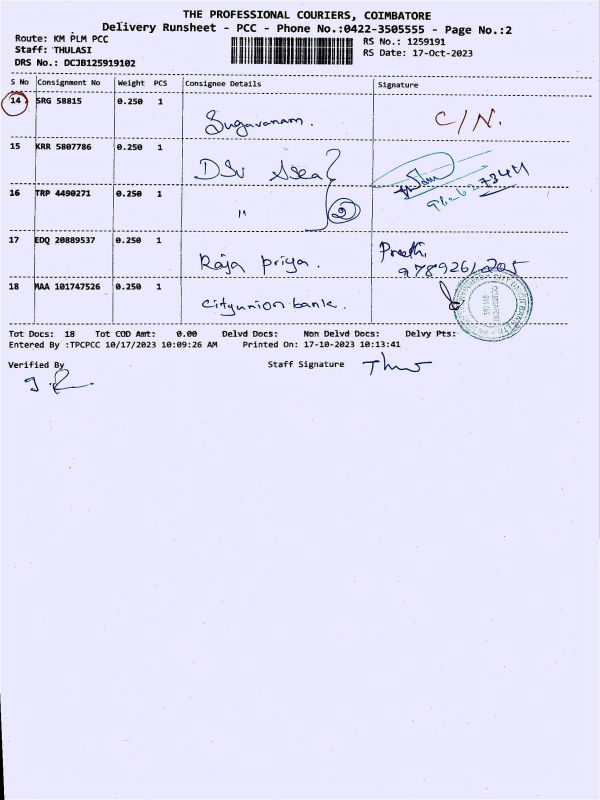 THE PROFESSIONAL COURIERS, COIMBATORE
Delivery Runsheet - PCC - Phone No.:0422-3505555 - Page No.:2
Route: KM PLM PCC RS No.: 1259191
Staff: THULASI RS Date: 17-Oct-2023
DRS No.: DCJB125919102
S No Consignment No Weight PCS Consignee Details Signature
14 SRG 58815 0.250 1
Sugavanam. C/N.
15 KRR 5807786 0.250 1
DSV
16 TRP 4490271 0.250 1
" 2
17 EDQ 20889537 0.250 1
Raja priya. Preethi
18 MAA 101747526 0.250 1
Cityunion bank.
Tot Docs: 18 Tot COD Amt: 0.00 Delvd Docs: Non Delvd Docs: Delvy Pts:
Entered By :TPCPCC 10/17/2023 10:09:26 AM Printed On: 17-10-2023 10:13:41
Verified By Staff Signature